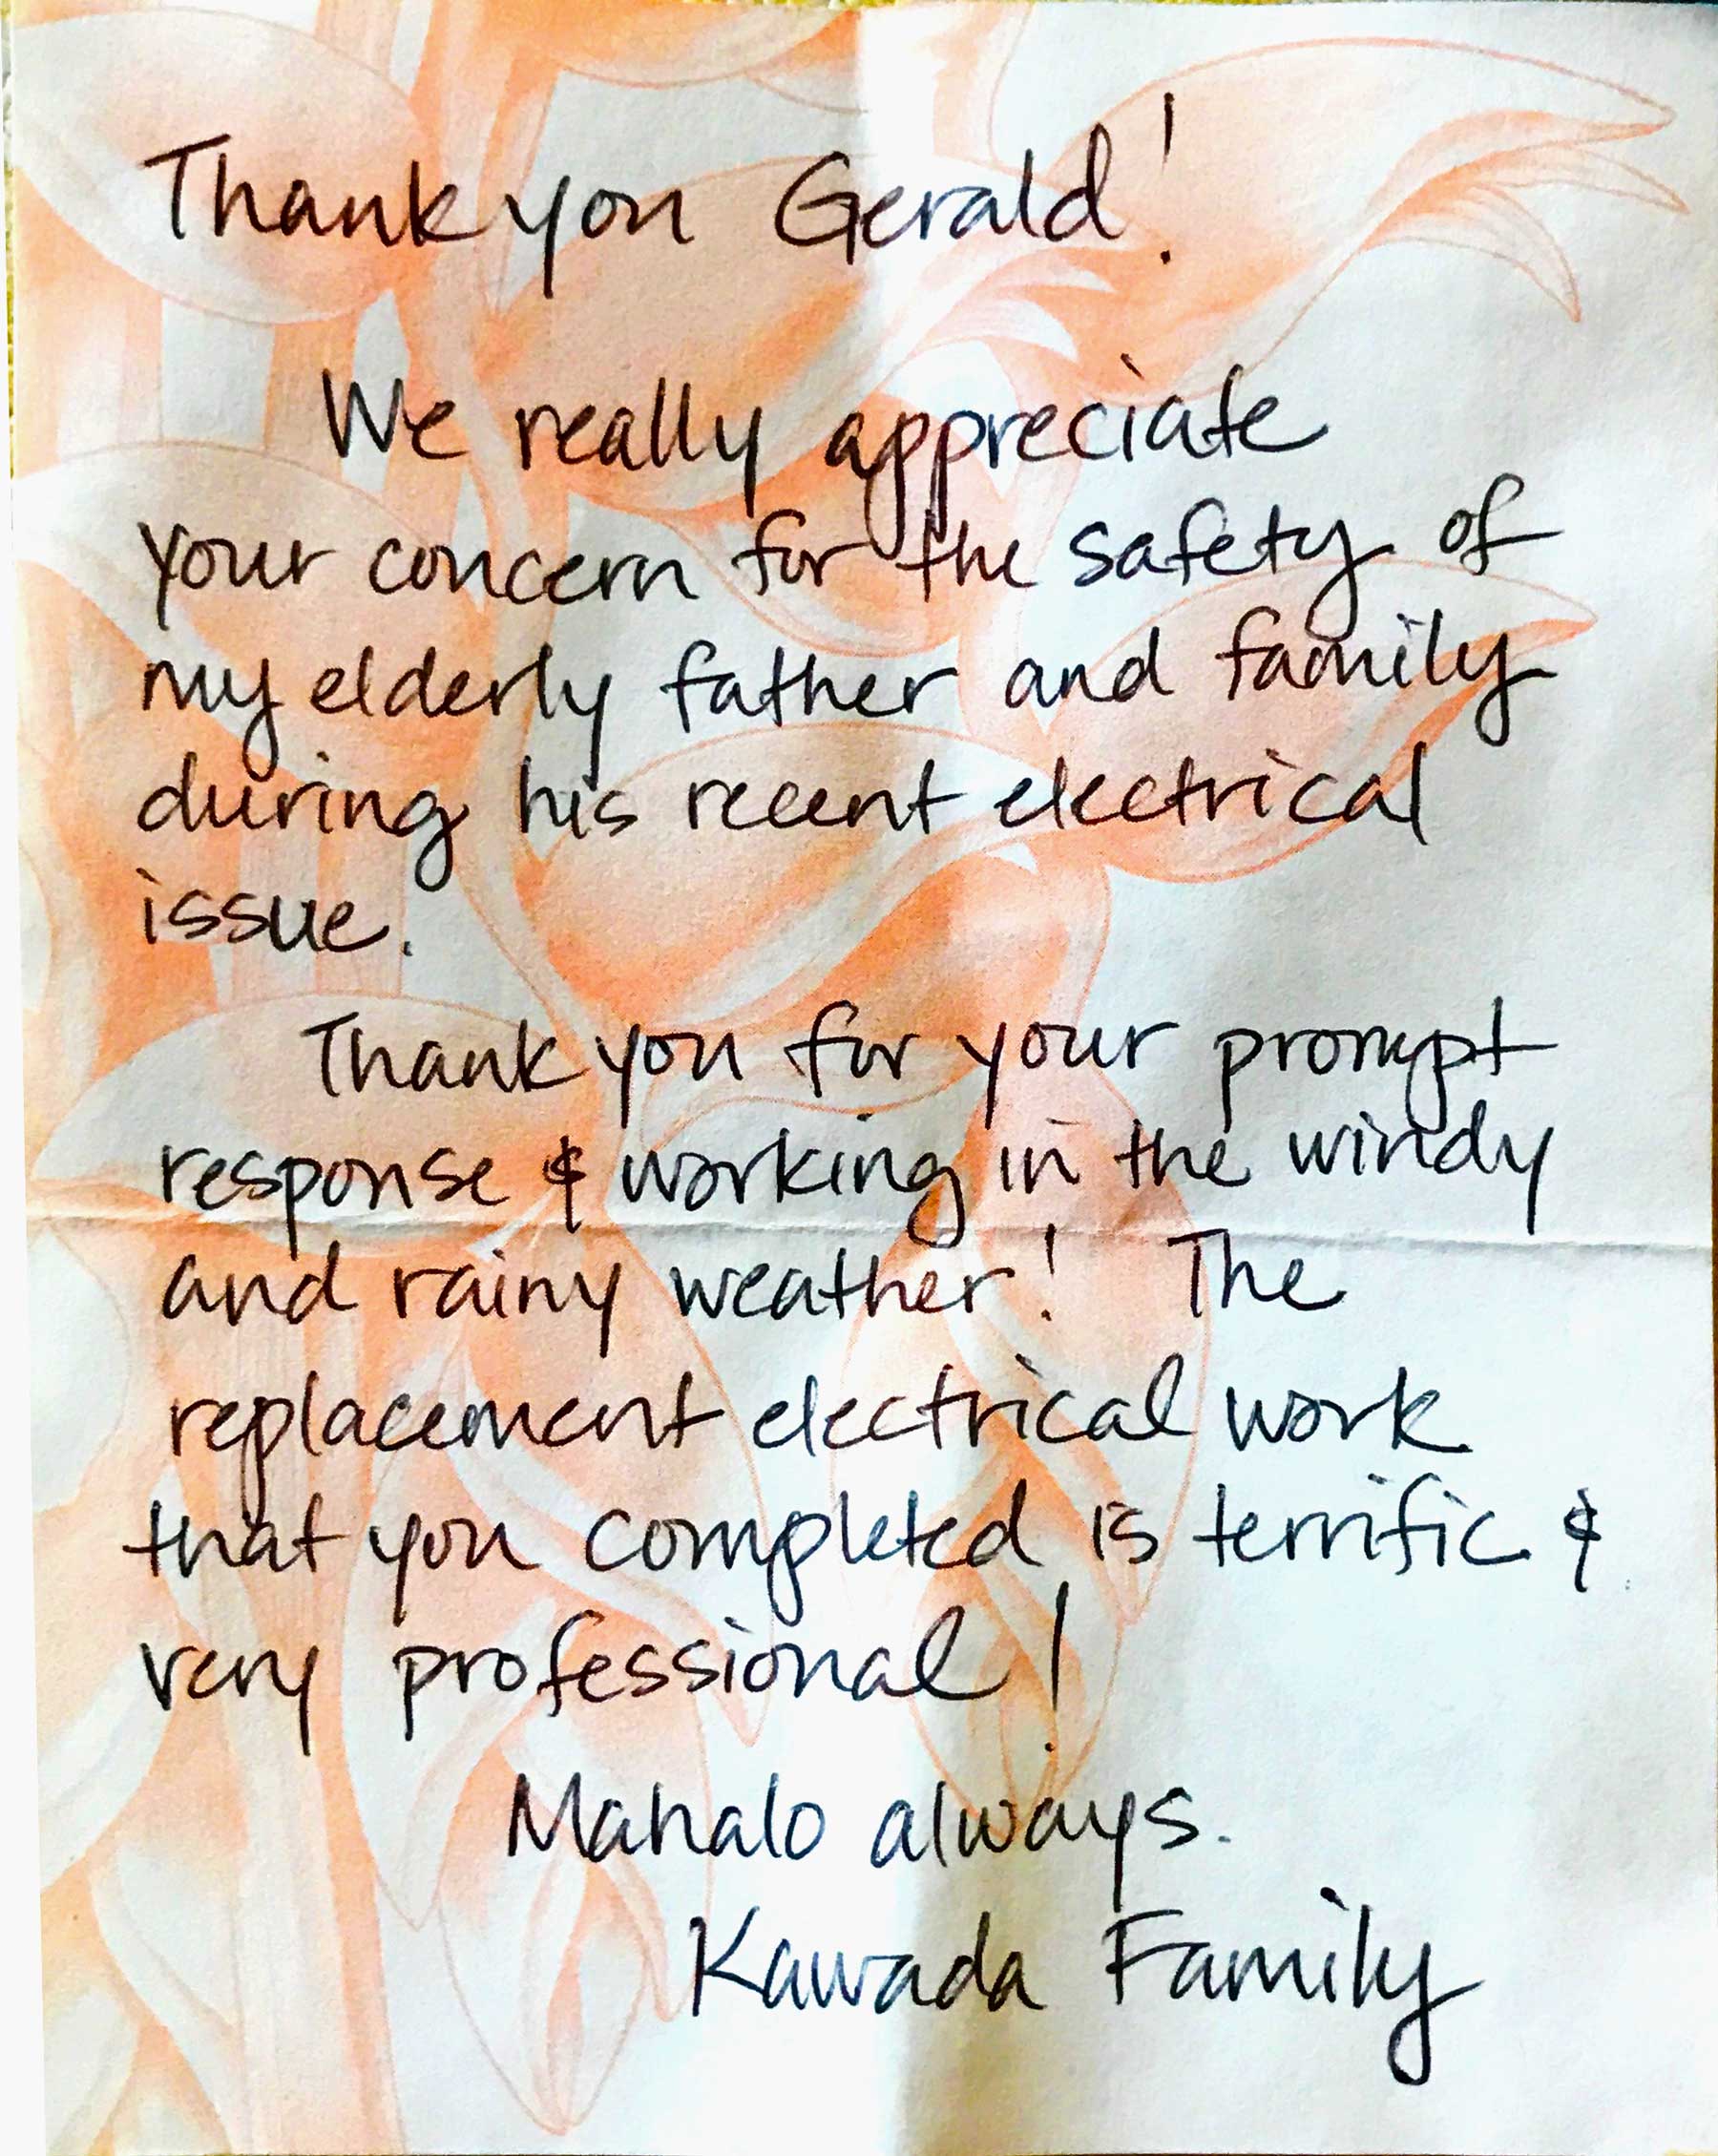 Thank you Gerald!
We really appreciate
your concern for the safety of
my elderly father and family
during his recent electrical
issue.
Thank you for your prompt
response & working in the windy
and rainy weather! The
replacement electrical work
that you completed is terrific &
very professional!
Mahalo always.
Kawada Family